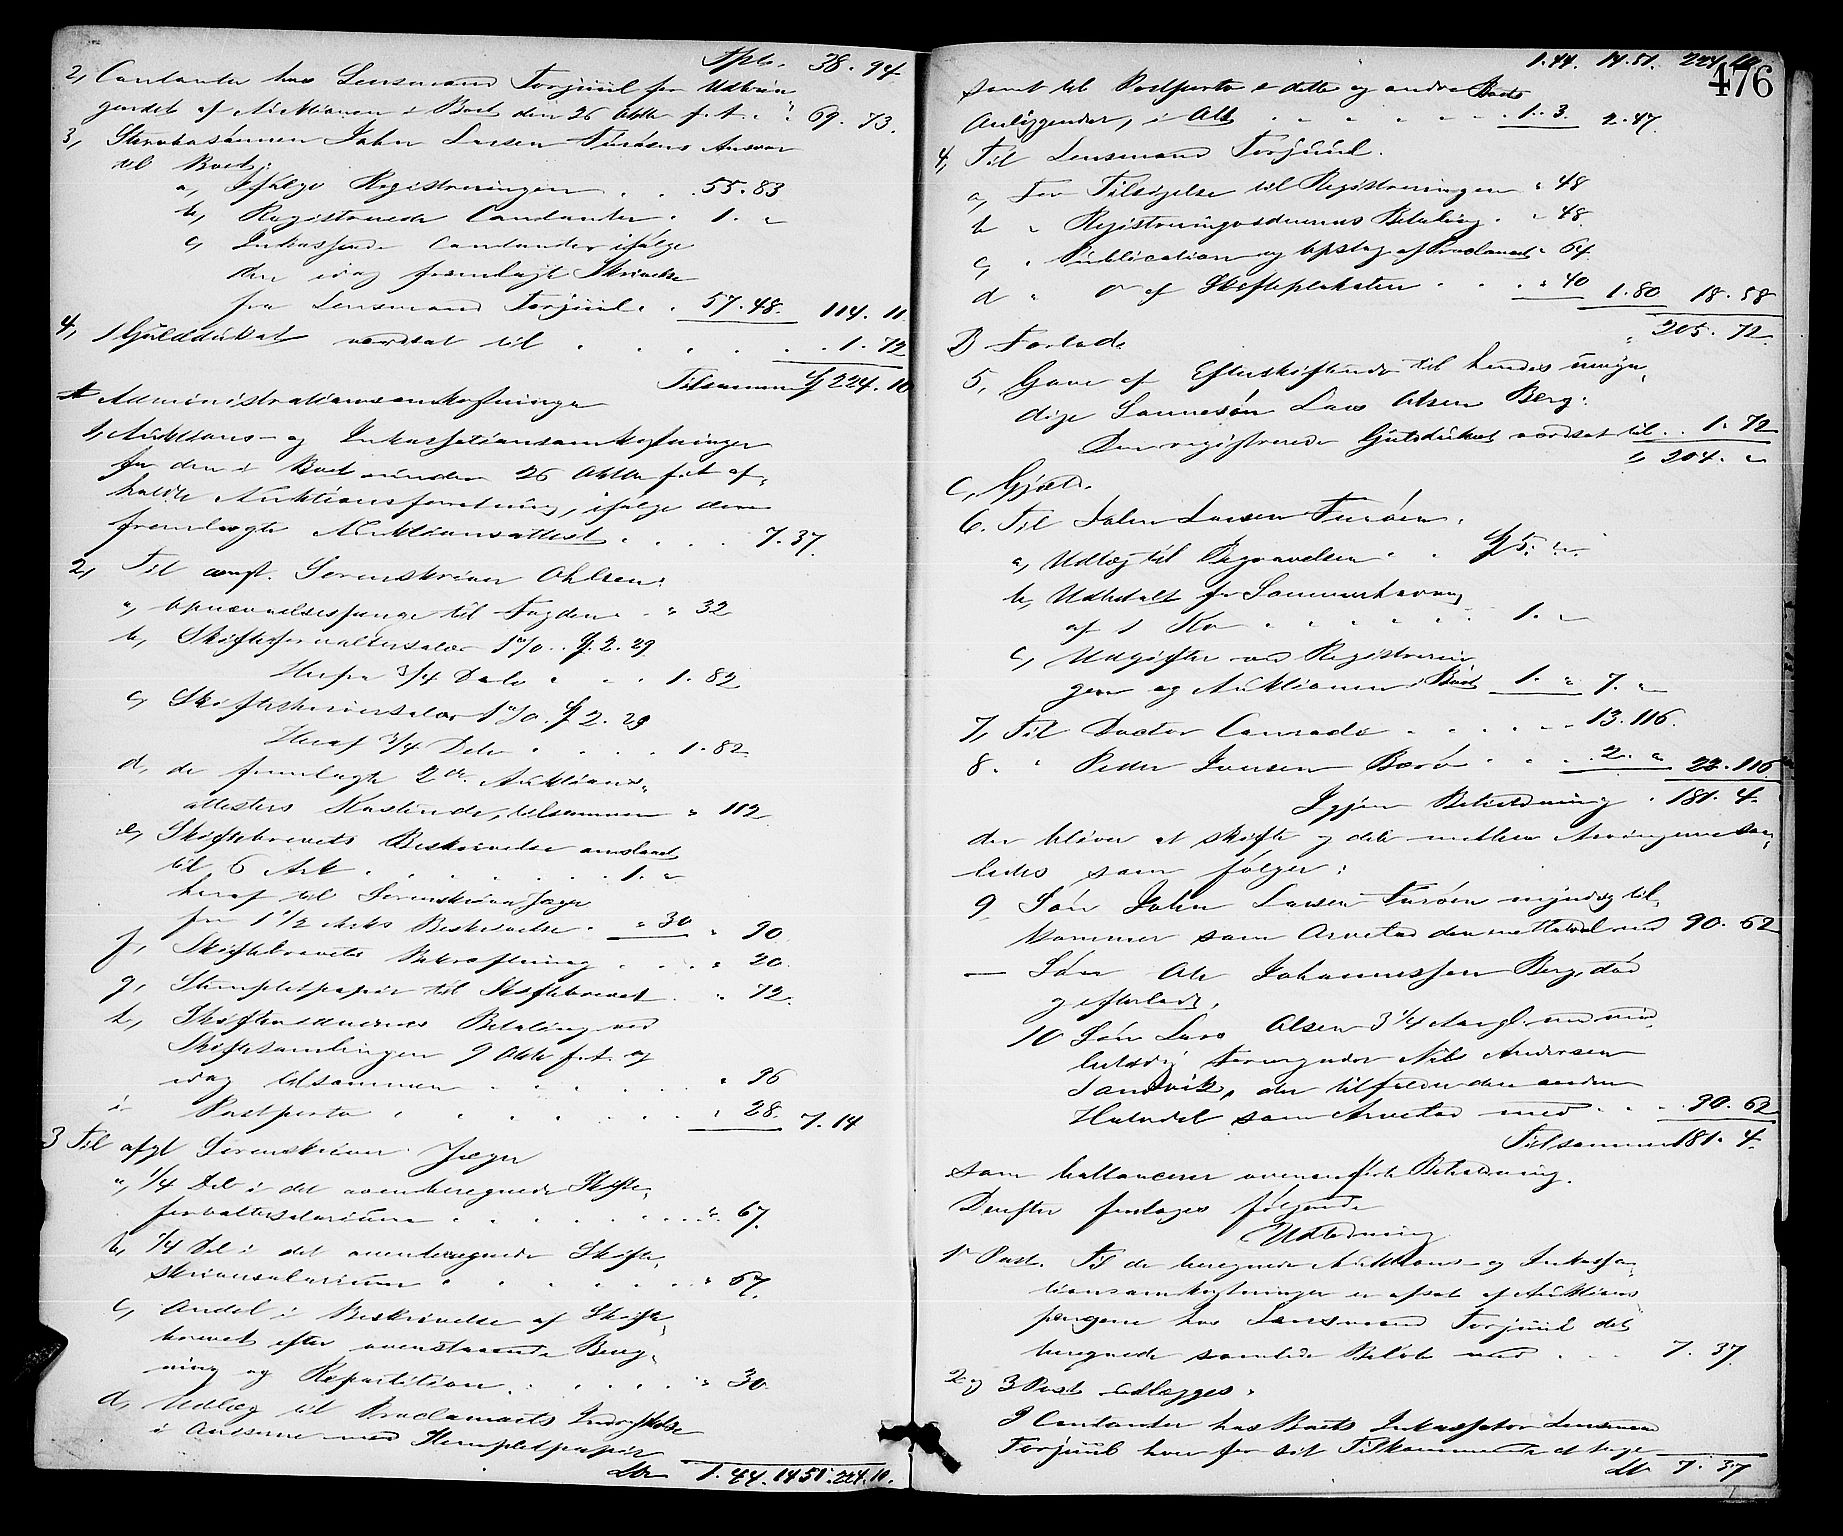 Transp. 38. 94.
2, Contanter hos Lensmand Torjuul for Udbrin-
gendet af Auktionen i Boet den 26 Oktbr f. A. . " 69. 73.
3, Sterbosønnen John Larsen Turøens Ansvar
til Boet:
a, Ifølge Registreringen . . . 55. 83
b, Registrerede Contanter . 1. "
c, Inkasserede Contanter ifølge
den idag fremlagt Skrivelse
fra Lensmand Torjuul . . 57. 48. 114. 11
4, 1 Gulddukat værdsat til . . . . . . . 1. 72
Tilsammen 224. 10
A Administrationsomkostninger
1, Auktions- og Inkassationsomkostninger
for den i Boet under 26 Oktbr f. A. af-
holdte Auktionsforretning, ifølge den
fremlagte Auktionsattest . . . . 7. 37.
2, Til const. Sorenskriver Ohlsen:
a, Opnævnelsespenge til Fogden . . " 32
b, Skifteforvaltersalær 1 % . 2. 29
Heraf 3/4 Dele . . . 1. 82
c, Skifteskriversalær 1 % . 2. 29
Heraf 3/4 Dele . . . . 1. 82
d, de fremlagte 2de Auktions-
attesters Kostende, tilsammen " 112
e, Skiftebrevets Beskrivelse anslaaet
til 6 Ark . . . . . . . 1. "
heraf til Sorenskriver Jæger
for 1 1/2 Arks Beskrivelse . " 30 " 90.
f, Skiftebrevets Bekræftning . . . " 20.
g, Stempletpapir til Skiftebrevet . . " 72.
h, Skiftevidnernes Betaling ved
Skiftesamlingen 9 Oktbr f. A. og
idag tilsammen . . . . . " 96
i Postporto . . . . . . . " 28. 7. 14
3 Til afgt. Sorenskriver Jæger
a, 1/4 Del i det ovenberegnede Skifte-
forvaltersalarium . . . . . . . " 67.
b, 1/4 Del i det ovenberegnede Skifte-
skriversalarium . . . . . . . " 67.
c, Andel i Beskrivelse af Skifte-
brevet efter ovenstaaende Bereg-
ning og Repartition . . . . . . " 30
d, Udlæg til Proclamaets Indrykkelse
i Aviserne med Stempletpapir
Ltr 1. 44. 14 51. 224. 10.
476
1. 44. 14. 51. 224. 10.
samt til Postporto i dette og andre Boets
Anliggender, i Alt . . . . . . 1. 3. 2. 47.
4, Til Lensmand Torjuul.
a, For Tilsigelse til Registreringen " 48
b " Registreringsvidnernes Betaling . " 48.
c, " Publication og Opslag af Proclamaet " 64.
d " Do af Skifteplakaten . . . " 40 1. 80 18. 58
205. 72.
B Forlods
5, Gave af Efterskiftende til hendes umyn-
dige Sønnesøn Lars Olsen Berg:
Den registrerede Gulddukat værdsat til . . 1. 72
204. "
C, Gjæld.
6. Til John Larsen Turøen.
a, Udlæg til Begravelsen . . 5. "
b, Udbetalt for Sommerhavning
af 1 Ko . . . . . . . 1. "
c, Udgifter ved Registrerin
gen og Auktionen i Boet 1. " 7. "
7, Til Doctor Conradi . . . . . 13. 116.
8. " Peder Iversen Borø . . . . 2. " 22. 116
Igjen Beholdning . 181. 4.
der bliver at skifte og dele mellem Arvingerne saa-
ledes som følger:
9, Søn John Larsen Turøen myndig til-
kommer som Arvelod den netto del med 90. 62
— Søn Ole Johannessen Berg, død
og efterladt.
10 Søn Lars Olsen 3 1/4 Aar gl. med mid-
lertidig Formynder Nils Andersen
Sandvik, der tilfalder den anden
Halvdel som Arvelod med . . . . 90. 62
Tilsammen 181. 4.
som ballancerer ovenanførte Beholdning.
Derefter foretages følgende
Udlodning
1ste Post. Til de beregnede Auktions- og Inkassa-
tionsomkostninger er afsat af Auktions
pengene hos Lensmand Torjuul det
beregnede samlede Beløb med . . . 7. 37.
2 og 3 Post udlægges:
I Contanter hos Boets Inkassator Lensmand
Torjuul hver for sit Tilkommende at tage
Ltr 7. 37